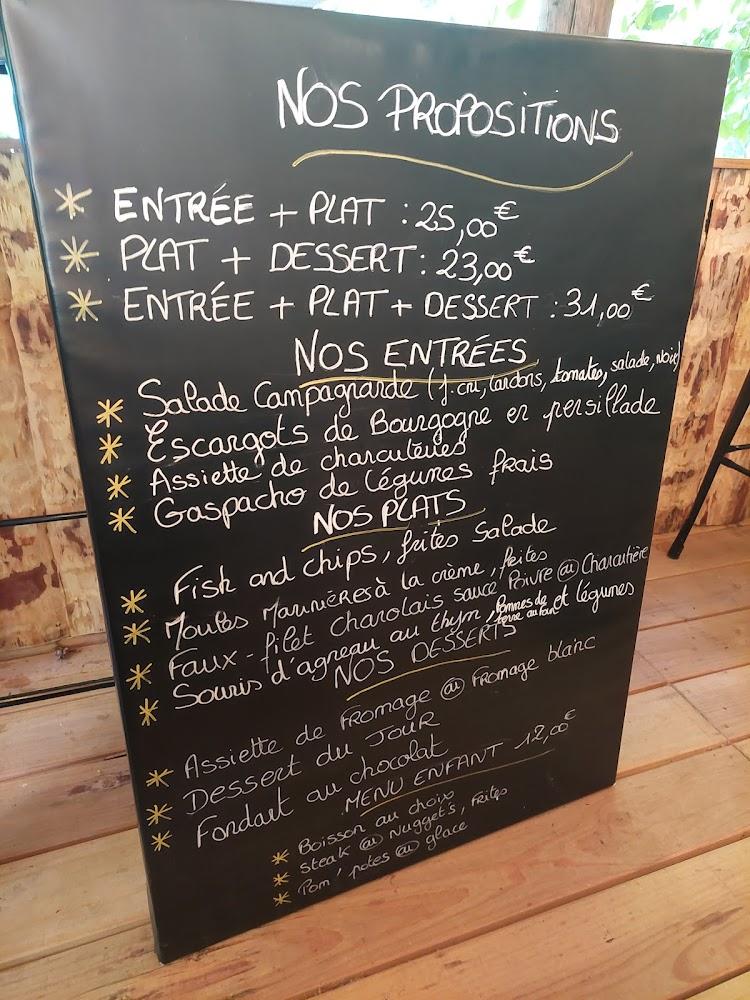 NOS PROPOSITIONS
* ENTRÉE + PLAT : 25,00€
* PLAT + DESSERT : 23,00€
* ENTRÉE + PLAT + DESSERT : 31,00€
NOS ENTRÉES
* Salade Campagnarde (j. cru, lardons, tomates, salade, noix)
* Escargots de Bourgogne en persillade
* Assiette de charcuteries
* Gaspacho de légumes frais
NOS PLATS
* Fish and chips, frites Salade
* Moules Marinières à la crème, frites
* Faux-filet Charolais sauce Poivre ou Charcutière
* Souris d'agneau au thym, Pommes de terre au four et légumes
NOS DESSERTS
* Assiette de fromage ou Fromage blanc
* Dessert du JOUR
* Fondant au chocolat
MENU ENFANT 12,00€
* Boisson au choix
* Steak ou Nugget's, Frites
* Pom'potes ou glace